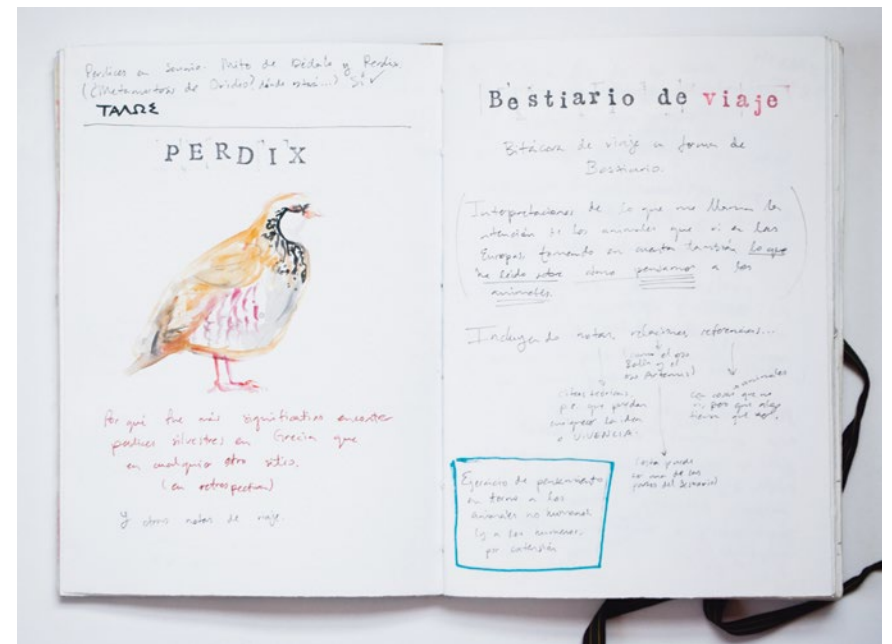 Perdices en Sounio. Mito de Dédalo y Perdix.
(¿Metamorfosis de Ovidio?, dónde está...) Sí ✓
ΤΑΛΩΣ
PERDIX
Por qué fue más significativo encontrar
perdices silvestres en Grecia que
en cualquier otro sitio.
(en retrospectiva)
Y otras notas de viaje.
Bestiario de viaje
Bitácora de viaje a forma de
Bestiario.
(Interpretaciones de lo que me llamó la
atención de los animales que vi en las
Europas tomando en cuenta también lo que
he leído sobre cómo pensamos a los
animales.)
Incluyendo notas, relaciones, referencias...
(como el oso
y el
oso Artemis)
citas teóricas,
p.e. que puedan
enriquecer la idea
o VIVENCIA.
animales
con cosas que no
vi, pero que algo
tienen que ver.
(esta puede
ser una de las
partes del bestiario)
Ejercicio de pensamiento
en torno a los
animales no humanos
(y a los humanos,
por extensión